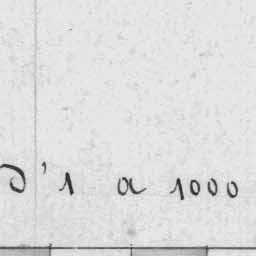 d'1 a 1000